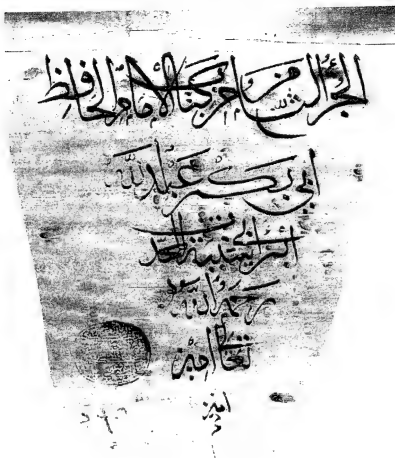 الجزء من كتاب الامام الحافظ
ابي بكر عبد الله
ابن ابي شيبة المحدث
رحمه الله
تعالى امين
امين